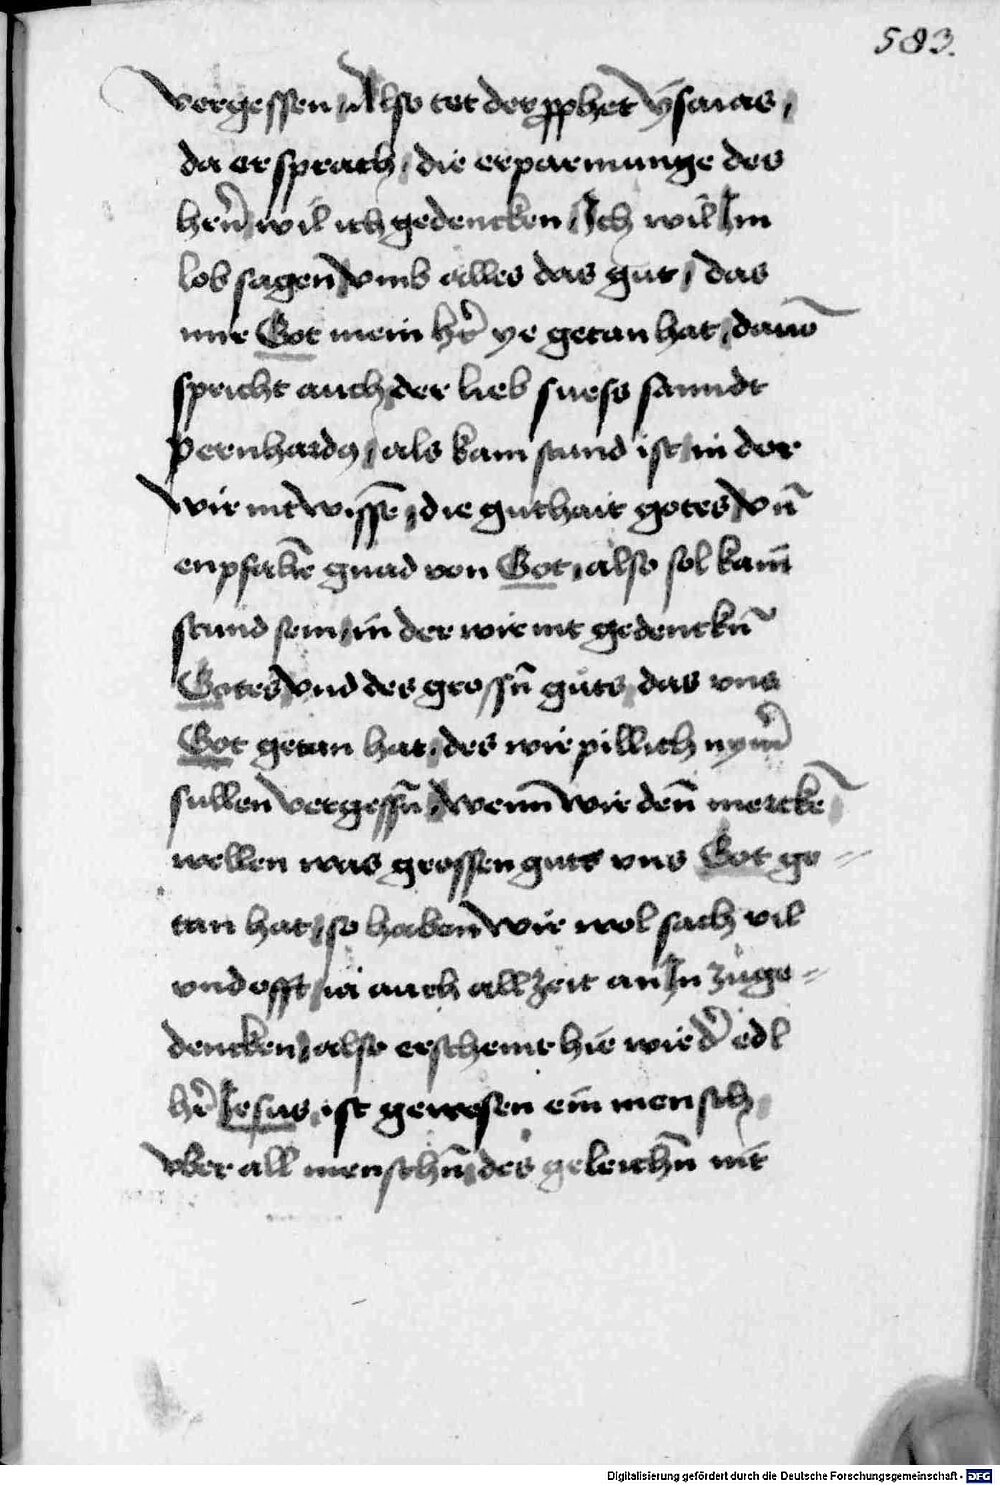 583.
vergessen Also tet der pphet ysaias
da er sprach die erparmunge des
hern̄ wil ich gedencken Ich wil Im
lob sagen vmb alles das gut das
mir Got mein hr̄ ye getan hat dauō
spricht auch der lieb suess sannd
pernhardꝰ als kain stund ist in der
wir nit wissē die guthait gotes vn̄
enpfahē gnad von Got also sol kain
stund sein in der wir nit gedenckn̄
Gotes vnd des grossn̄ guts das vns
Got getan hat des wir pillich nym̄
sullen vergessn̄ wenn wir den̄ merckē
wellen was grossen guts vns Got ge=
tan hat so haben wir wol sach vil
vnd offt ia auch allzeit an In zuge=
dencken also erscheint hie wie d' edl
hr̄ Jesus ist gewesen ein mensch
vber all menschn̄ des geleichn̄ nit
Digitalisierung gefördert durch die Deutsche Forschungsgemeinschaft - DFG